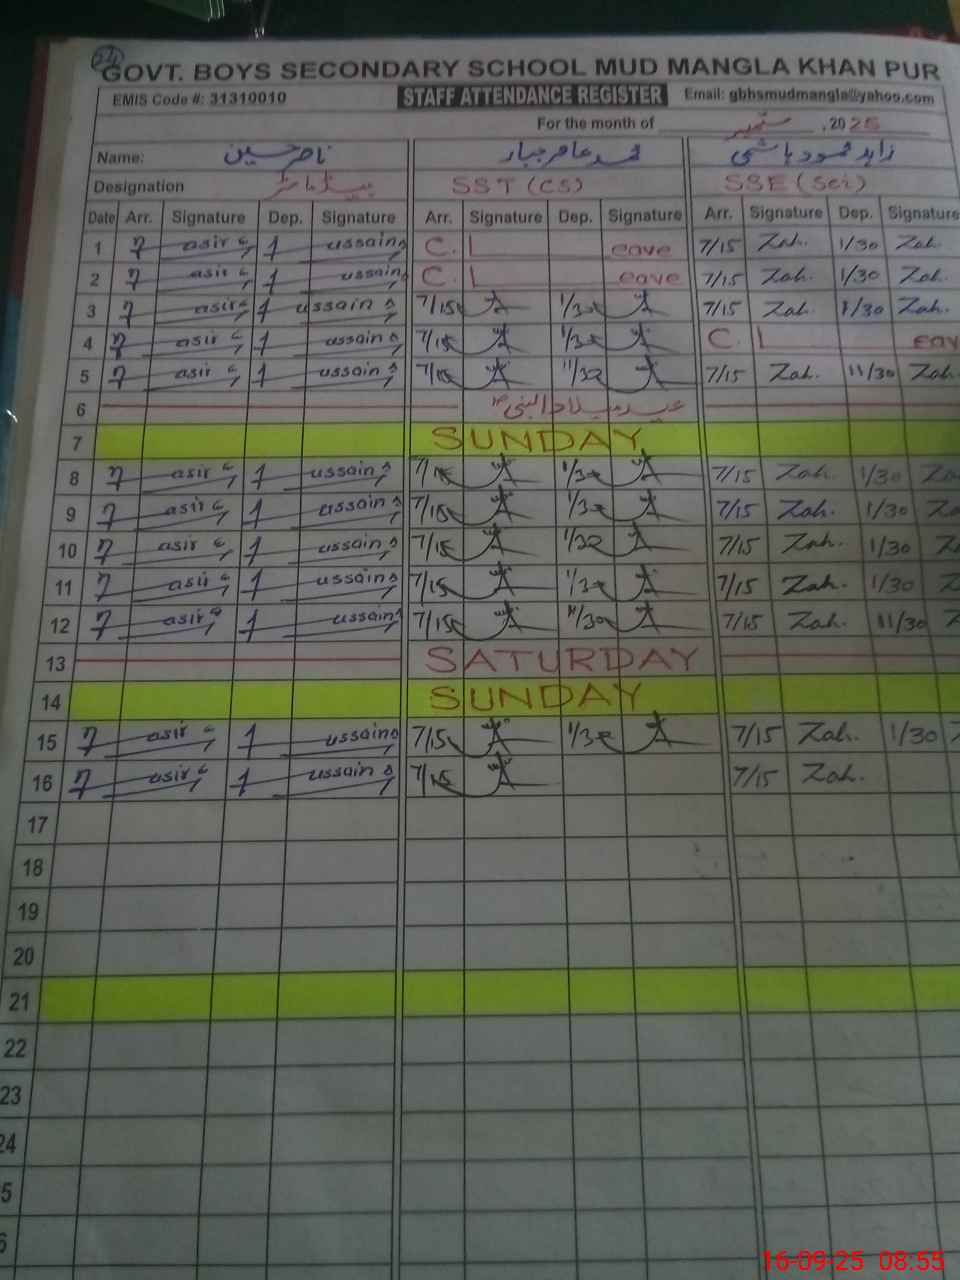 GOVT. BOYS SECONDARY SCHOOL MUD MANGLA KHAN PUR
EMIS Code #: 31310010 STAFF ATTENDANCE REGISTER Email: gbhsmudmangla@yahoo.com
For the month of ستمبر , 2025
Name: ناصر حسین محمد عامر جبار زاہد محمود ہاشمی
Designation ہیڈ ماسٹر SST (CS) SSE (Sci)
Date Arr. Signature Dep. Signature Arr. Signature Dep. Signature Arr. Signature Dep. Signature
1 7 asir 1 ussain C. L eave 7/15 Zah. 1/30 Zah.
2 7 asir 1 ussain C. L eave 7/15 Zah. 1/30 Zah.
3 7 asir 1 ussain 7/15 1/30 7/15 Zah. 1/30 Zah.
4 7 asir 1 ussain 7/15 1/30 C. L eav
5 7 asir 1 ussain 7/15 11/30 7/15 Zah. 11/30 Zah.
6 عید میلاد النبی
7 SUNDAY
8 7 asir 1 ussain 7/15 1/30 7/15 Zah. 1/30 Za
9 7 asir 1 ussain 7/15 1/30 7/15 Zah. 1/30 Za
10 7 asir 1 ussain 7/15 1/30 7/15 Zah. 1/30 Z
11 7 asir 1 ussain 7/15 1/30 7/15 Zah. 1/30 Z
12 7 asir 1 ussain 7/15 11/30 7/15 Zah. 11/30 Z
13 SATURDAY
14 SUNDAY
15 7 asir 1 ussain 7/15 1/30 7/15 Zah. 1/30 Z
16 7 asir 1 ussain 7/15 7/15 Zah.
17
18
19
20
21
22
23
24
5
6
16-09-25 08:55